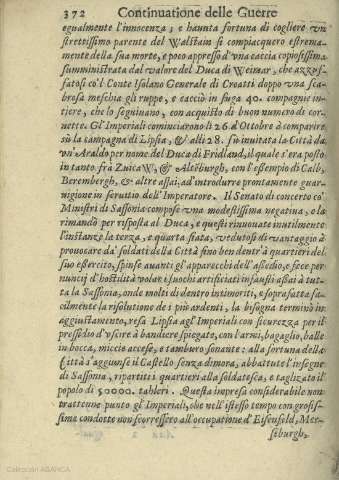 372 Continuatione delle Guerre
egualmente l'innocenza; e hauuta fortuna di cogliere vn
strettissimo parente del Walstain si compiacquero estrema-
mente della sua morte, e poco appresso d'vna caccia copiosissima
sumministrata dal valore del Duca di Weimar, che azzuf-
fatosi co'l Conte Isolano Generale di Croatti doppo vna sca-
brosa meschia gli ruppe, e cacciò in fuga 40. compagnie in-
tiere, che lo seguiuano, con acquisto di buon numero di cor-
nette. Gl'Imperiali cominciarono li 26. d'Ottobre à comparire
sù la campagna di Lipsia, & alli 28. fu inuitata la Città da
vn'Araldo per nome del Duca di Fridland, il quale s'era posto
in tanto frà Zuica W, & Altēburgh, con l'essempio di Calb,
Berembergh, & altre assai, ad introdurre prontamente guar-
nigione in seruitio dell'Imperatore. Il Senato di concerto co'
Ministri di Sassonia compose vna modestissima negatiua, e la
rimandò per risposta al Duca, e questi rinouate inutilmente
l'instanze la terza, e quarta fiata, vedutosi di vantaggio à
prouocare da' soldati della Città fino ben dentr'à quartieri del
suo essercito, spinse auanti gl'apparecchi dell'assedio, e fece per
nuncij d'hostilità volar e fuochi artificiati in fausti assai à tut-
ta la Sassonia, onde molti di dentro intimoriti, e soprafatta fa-
cilmente la risolutione de i più ardenti, la bisogna terminò in
aggiustamento, resa Lipsia agl'Imperiali con sicurezza per il
pressedio d'vscire à bandiere spiegate, con l'armi, bagaglio, balle
in bocca, miccie accese, e tamburo sonante: alla fortuna della
Città s'aggiunse il Castello senza dimora, abbattute l'insegne
di Sassonia, ripartiti quartieri alla soldatesca, e taglizato il
popolo di 50000. tahleri. Questa impresa considerabile non
trattenne punto gl'Imperiali, che nell'istesso tempo con grosis-
sime condotte non scorressero all'occupatione d'Eisenfeld, Mer-
siburgh,
Colección ABANCA